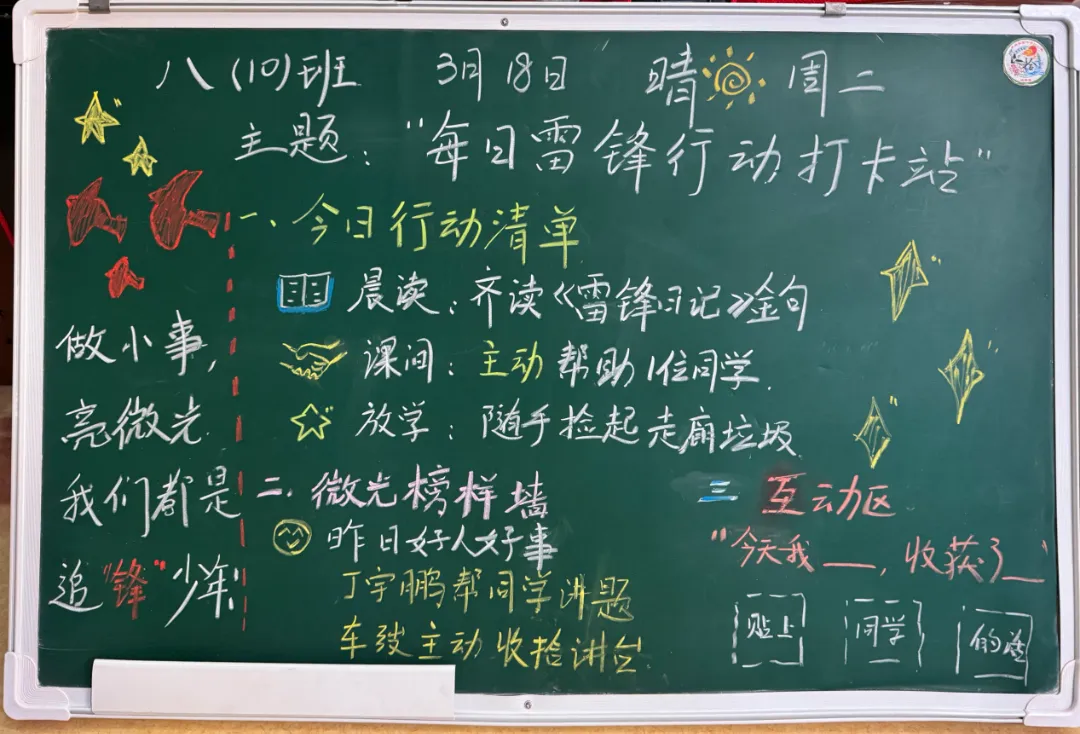 八(10)班 3月18日 晴 周二
主题："每日雷锋行动打卡站"
一、今日行动清单
晨读：齐读《雷锋日记》金句
课间：主动帮助1位同学.
放学：随手捡起走廊垃圾
做小事,
亮微光.
我们都是
追"锋"少年!
二.微光榜样墙
昨日好人好事
丁宇鹏帮同学讲题
车 主动收拾讲台.
三 互动区
"今天我__,收获了__"
贴上 同学 的